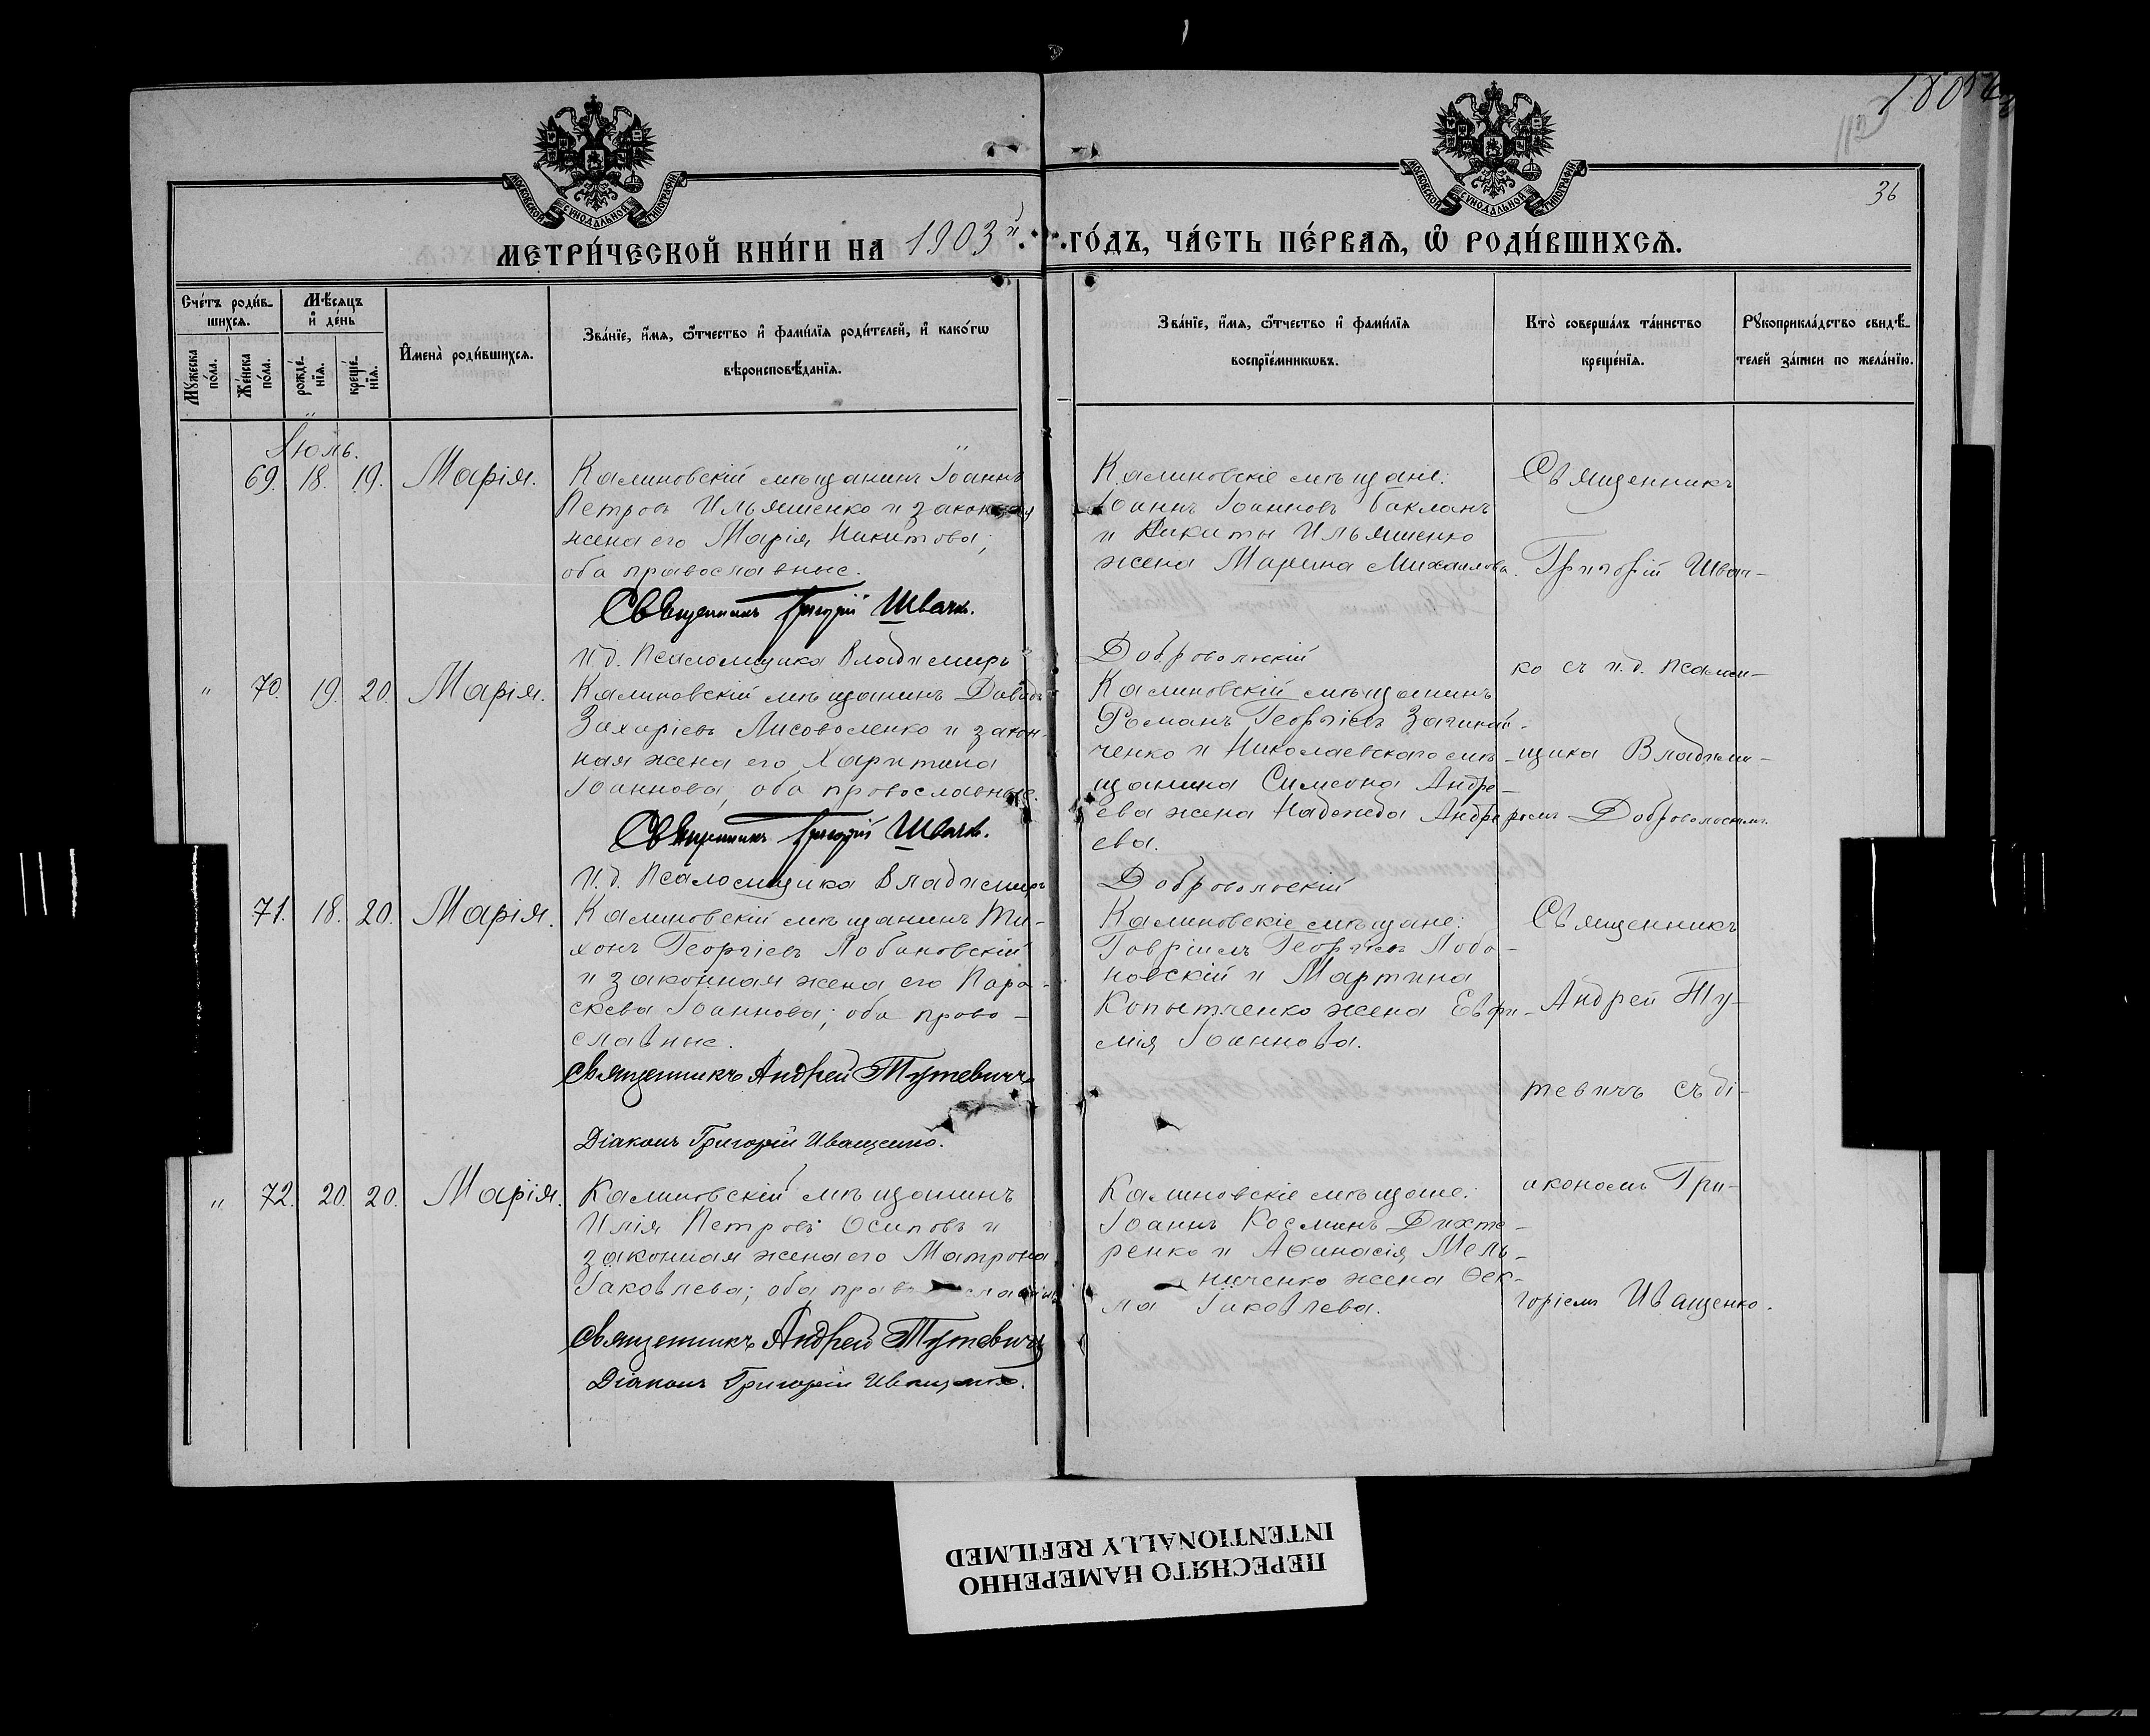 180
112
36
МОСКОВСКОЙ СѴНОДАЛЬНОЙ ТИПОГРАФІИ
МОСКОВСКОЙ СѴНОДАЛЬНОЙ ТИПОГРАФІИ
МЕТРИ́ЧЕСКОЙ КНИ́ГИ НА 1903й
ГО́ДЪ, ЧА́СТЬ ПЕ́РВАѦ, Ѡ҆ РОДИ́ВШИХСѦ.
Сче́тъ роди́в-
шихсѧ.
Мꙋ́жеска по́ла.
Же́нска по́ла.
Мѣ́сѧцъ
и҆ де́нь
рожде́-
нїѧ.
креще́-
нїѧ.
И҆мена̀ роди́вшихсѧ.
Зва́нїе, и҆́мѧ, ѻ҆́тчество и҆ фами́лїѧ роди́телей, и҆ како́гѡ
вѣроисповѣ́данїѧ.
Зва́нїе, и҆́мѧ, ѻ҆́тчество и҆ фами́лїѧ
воспрїе́мникѡвъ.
Кто̀ соверша́лъ та́инство
креще́нїѧ.
Рꙋкоприкла́дство свидѣ́-
телей за́писи по жела́нїю.
Іюль.
69. 18. 19. Марія.
Калиновскій мѣщанинъ Іоаннъ
Петровъ Ильяшенко и законная
жена его Марія Никитова;
оба православные.
Священникъ Григорій Швачко.
И.д. Псаломщика Владимиръ
Калиновскіе мѣщане:
Іоаннъ Іоанновъ Бакланъ
и Никиты Ильяшенко
жена Марина Михаилова.
Добровольскій
Священникъ
Григорій Швач-
ко съ и.д. псалом-
щика Владими-
ромъ Добровольскимъ.
" 70. 19. 20. Марія.
Калиновскій мѣщанинъ Давидъ
Захаріевъ Лисоволенко и закон-
ная жена его Харитина
Іоаннова; оба православные.
Священникъ Григорій Швачко.
И.д. Псаломщика Владимиръ
Калиновскій мѣщанинъ
Романъ Георгіевъ
ченко и Николаевскаго мѣ-
щанина Симеона Андре-
ева жена Надежда Андре
ева.
Добровольскій
71. 18. 20. Марія.
Калиновскій мѣщанинъ Ти-
хонъ Георгіевъ Лобановскій
и законная жена его Пара-
скева Іоаннова; оба право-
славные.
Священникъ Андрей Тутевичъ
Діаконъ Григорій Иващенко.
Калиновскіе мѣщане:
Гавріилъ Георгіевъ Лоба-
новскій и Мартина
Копытченко жена Евфи-
мія Іоаннова.
Священникъ
Андрей Ту-
тевичъ съ ді-
акономъ Гри-
горіемъ Иващенко.
" 72. 20. 20. Марія.
Калиновскій мѣщанинъ
Илія Петровъ Осиповъ и
законная жена его Матрона
Іаковлева; оба православные
Священникъ Андрей Тутевичъ
Діаконъ Григорій Иващенко.
Калиновскіе мѣщане:
Іоаннъ Косминъ Дихте-
ренко и Аѳанасія Мель-
ниченко жена Ѳек-
ла Іаковлева.
ПЕРЕСНЯТО НАМЕРЕННО
INTENTIONALLY REFILMED